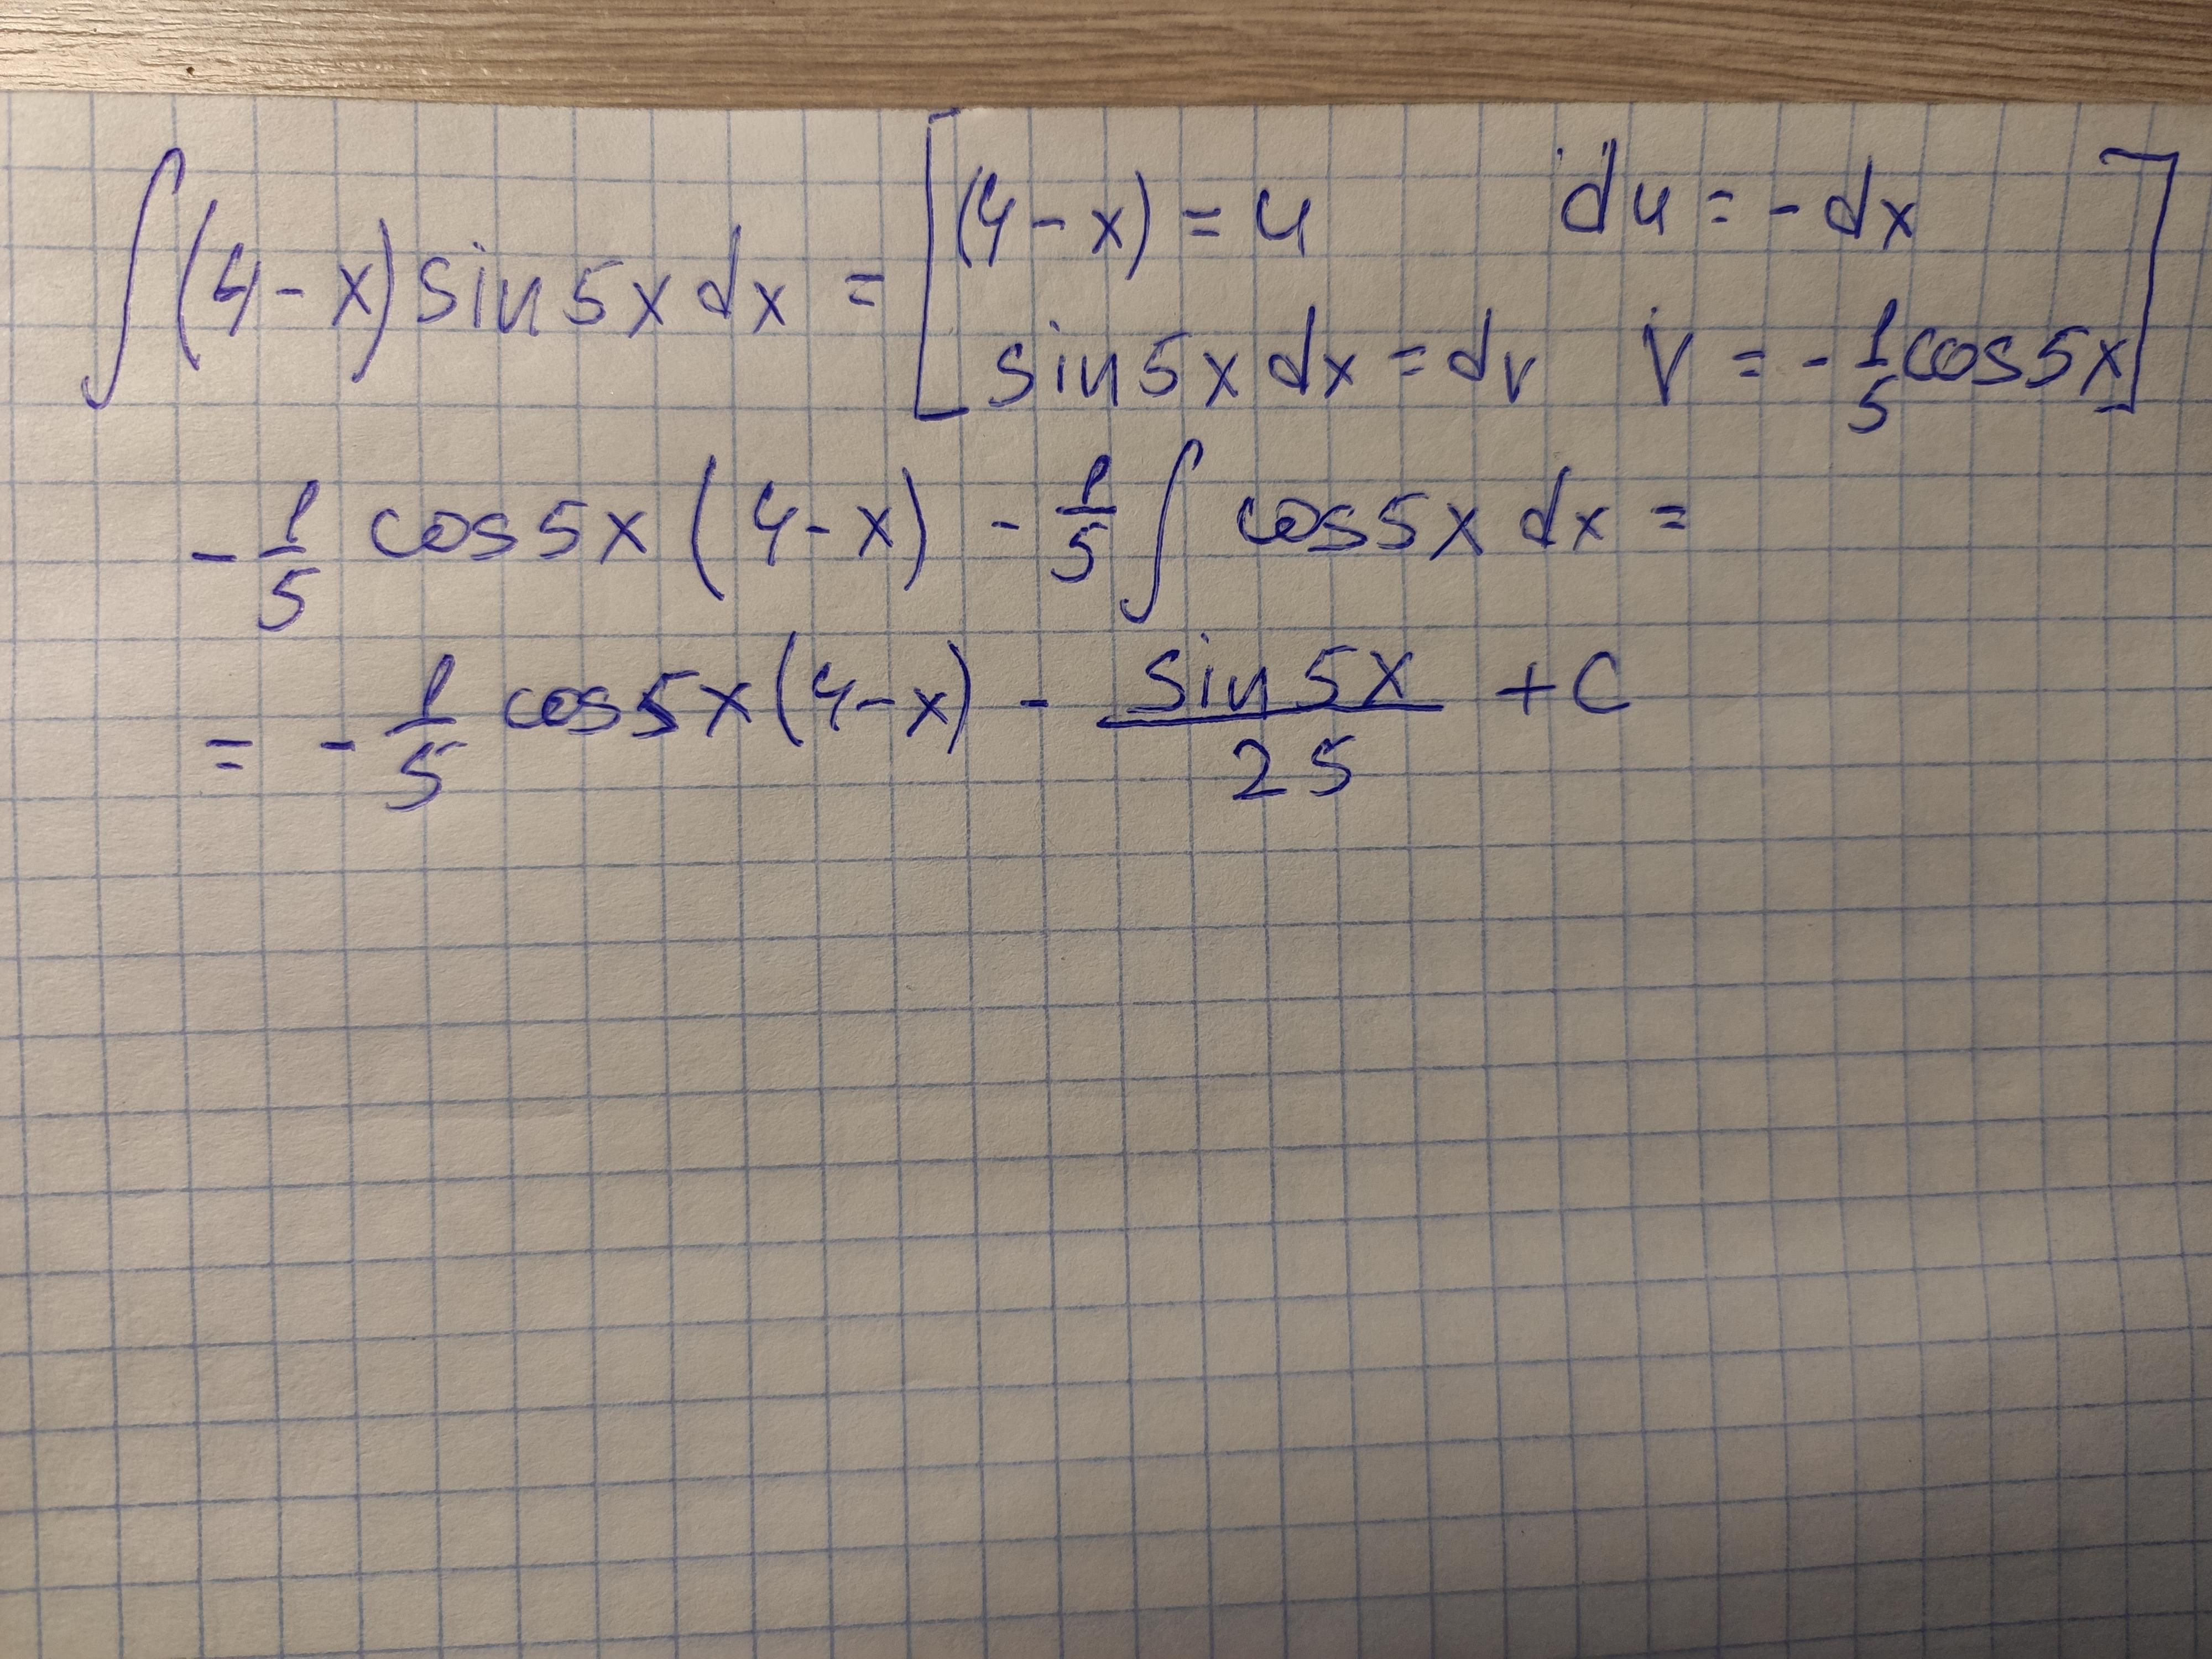 ∫(4-x)sin5xdx = [(4-x) = u du = -dx
sin5xdx = dv v = -1/5 cos5x]
-1/5 cos5x(4-x) - 1/5 ∫ cos5x dx =
= -1/5 cos5x(4-x) - sin5x/25 + C